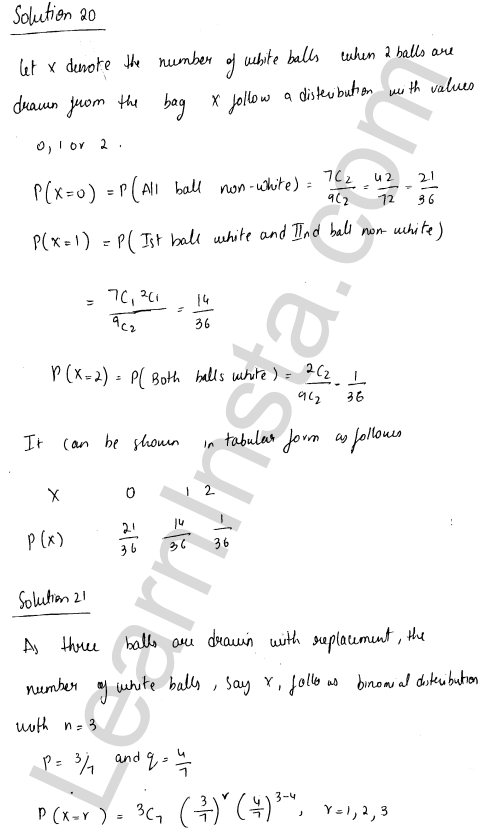 Solution 20
Let x denote the number of white balls when 2 balls are
drawn from the bag x follow a distribution with values
0, 1 or 2.
P(x=0) = P(All ball non-white) = 7C2/9C2 = 42/72 = 21/36
P(x=1) = P(Ist ball white and IInd ball non-white)
= 7C1 2C1/9C2 = 14/36
P(x=2) = P(Both balls white) = 2C2/9C2 - 1/36
It can be shown in tabular form as follows
X 0 1 2
P(x) 21/36 14/36 1/36
Solution 21
As three balls are drawn with replacement, the
number of white balls, say x, follo as binomial distribution
with n=3
P= 3/7 and q= 4/7
P(x=r) = 3C7 (3/7)^r (4/7)^3-4, r=1,2,3
LearnInsta.com